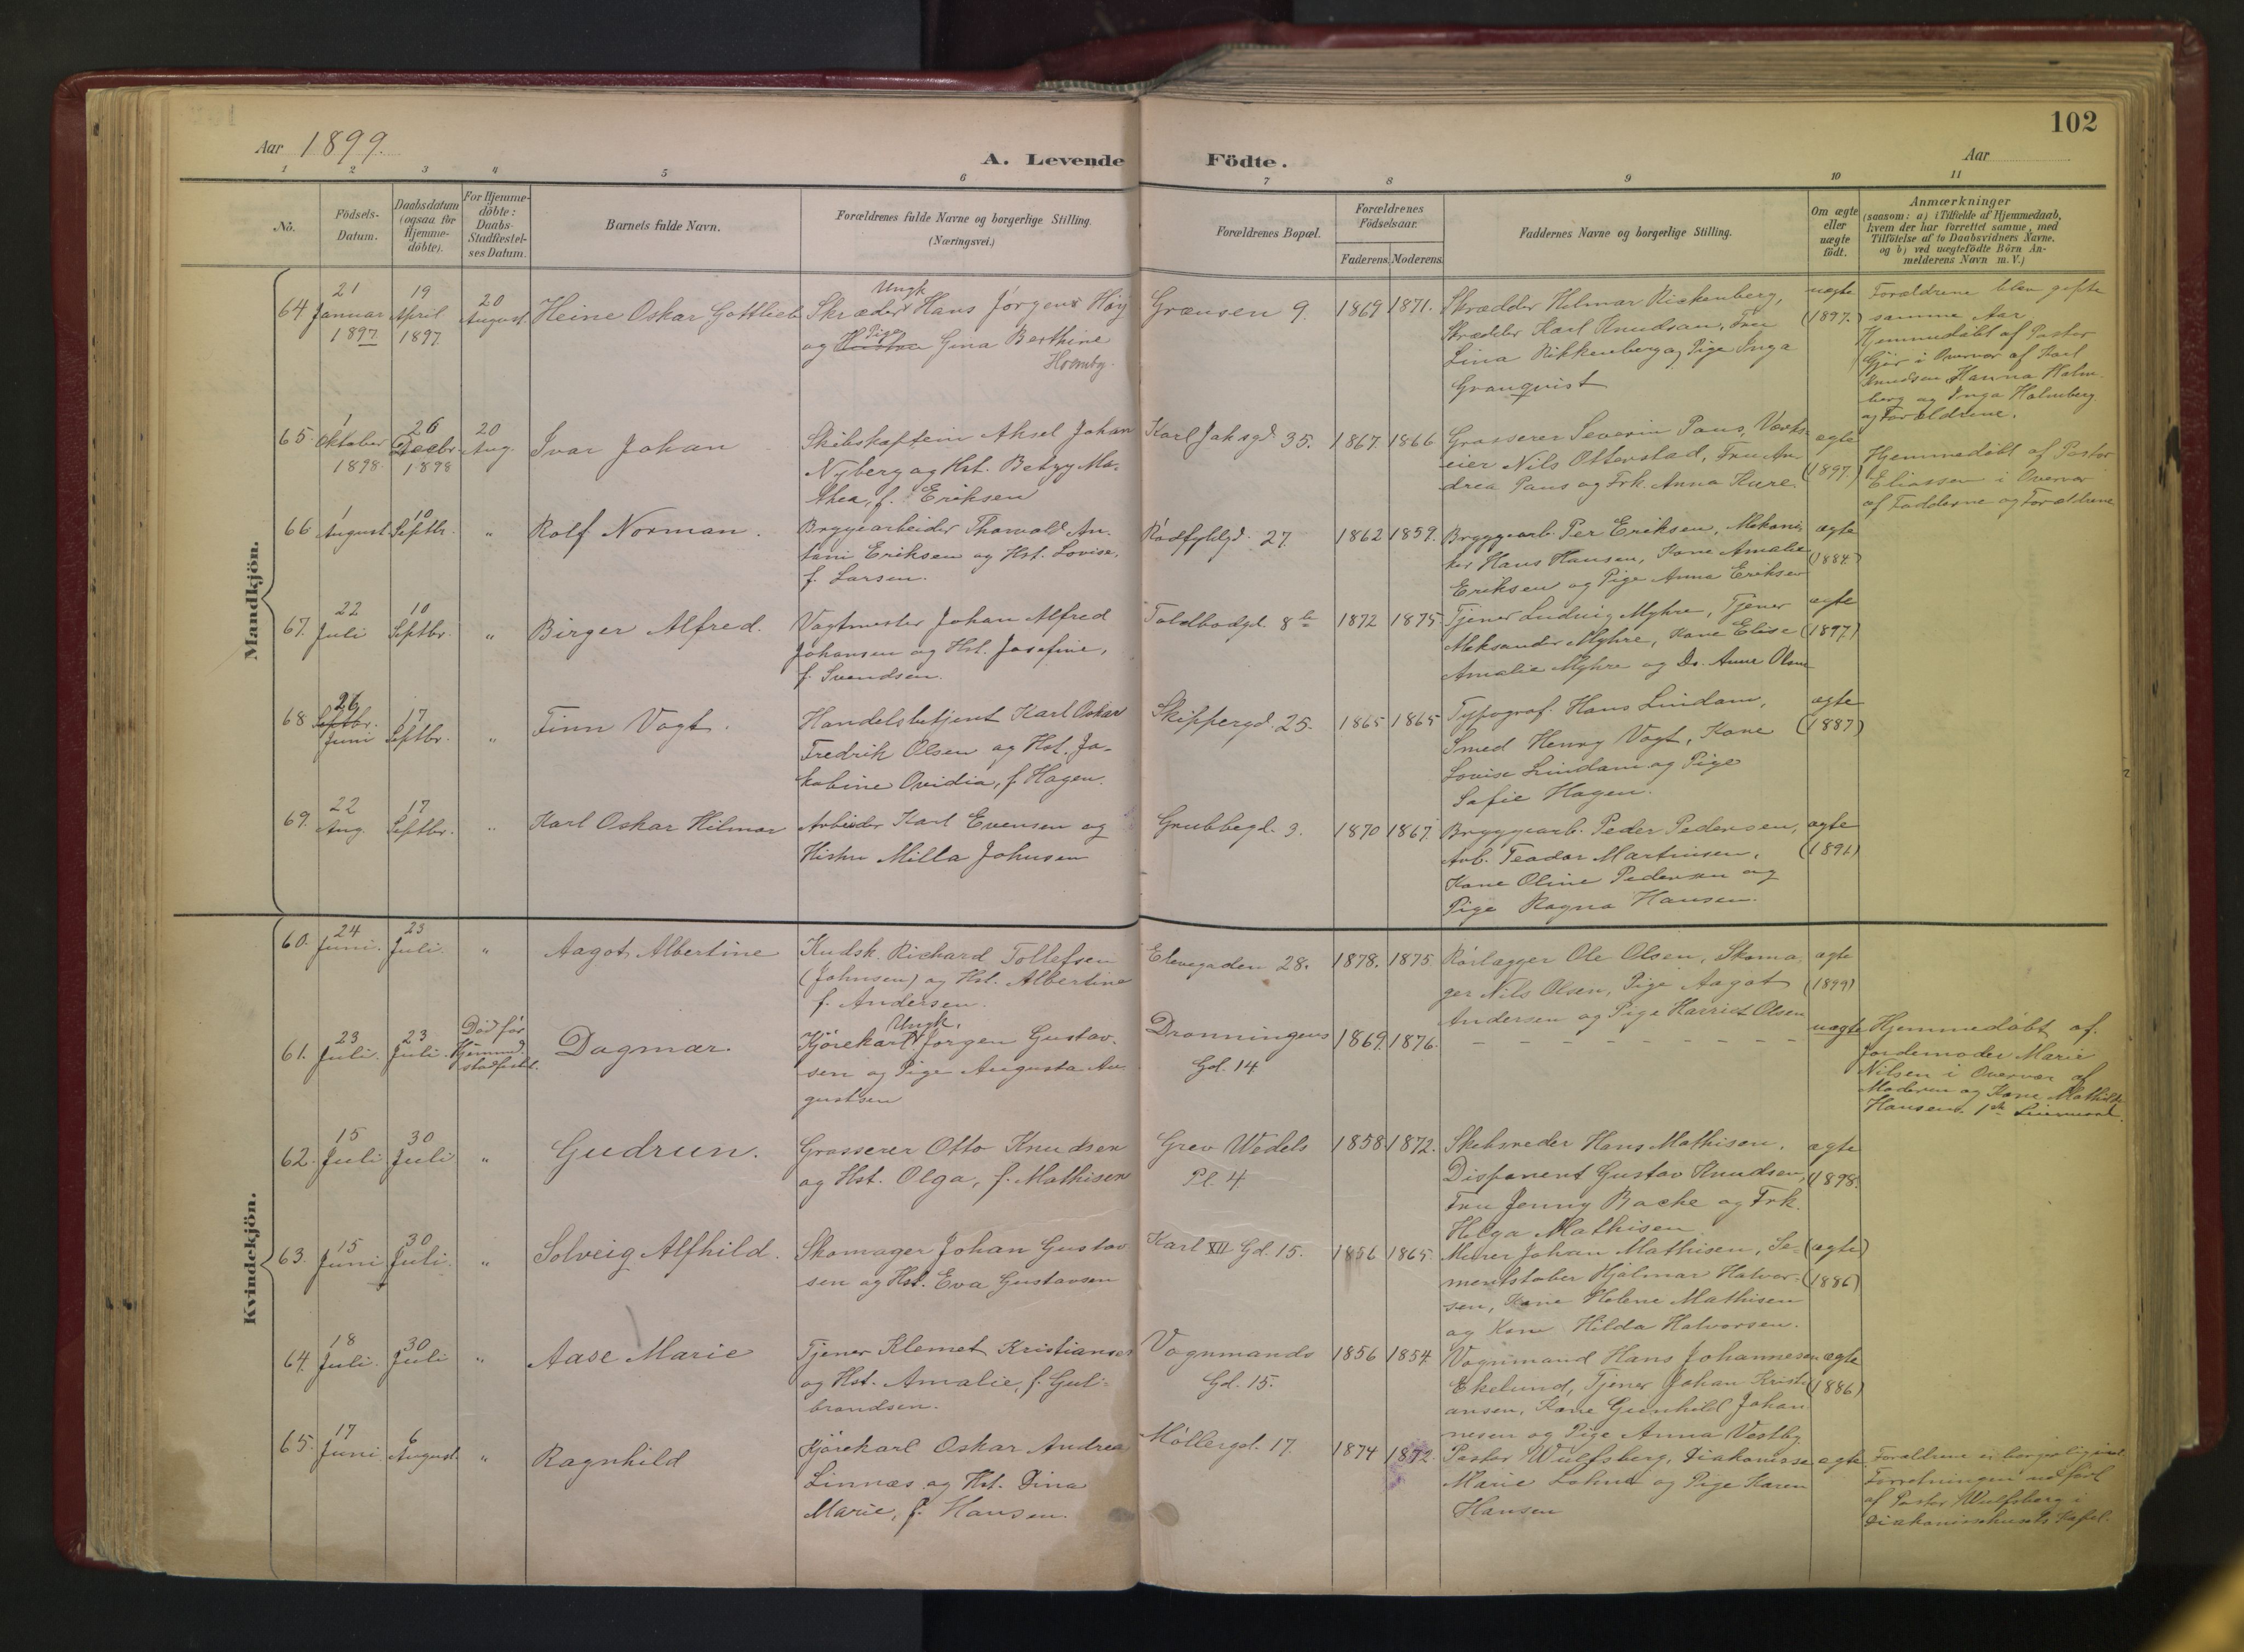 102
Aar 1899.
A. Levende Födte.
Aar
1 2 3 4 5 6 7 8 9 10 11
No.
Födsels-Datum.
Daabsdatum (ogsaa for Hjemme-döbte).
For Hjemme-döbte: Daabs-Stadfæstel-ses Datum.
Barnets fulde Navn.
Forældrenes fulde Navne og borgerlige Stilling. (Næringsvei.)
Forældrenes Bopæl.
Forældrenes Födselsaar.
Faderens. Moderens.
Faddernes Navne og borgerlige Stilling.
Om ægte eller uægte födt.
Anmærkninger
(saasom: a) i Tilfælde af Hjemmedaab, hvem der har forrettet samme, med Tilföielse af to Daabsvidners Navne, og b) ved uægtefödte Börn An-melderens Navn m. V.)
Mandkjön.
64 21 Januar 1897 19 April 1897 20 August Heine Oskar Gottlieb
Ungk
Skræder Hans Jørgen Høy
Pige
og Hustru Gina Berthine
Hornby.
Grænsen 9. 1869 1871.
Skrædder Hilmar Rickenberg,
Skrædder Karl Knudsen, Fru
Lina Rikkenberg og Pige Inga
Granquist
uægte (1897.)
Forældrene blev gifte
samme Aar
Hjemmedøbt af Pastor
Gjør i Overvær af Karl
Knudsen Hanna Holm-
berg og Inga Holmberg
og Forældrene.
65. 1 Oktober 1898. 26 Decbr. 1898 20 Aug. Ivar Johan
Skibskaptein Aksel Johan
Nyberg og Hst. Betzy Ma-
thea, f. Eriksen
Karl Johsgd 35. 1867. 1866
Grosserer Severin Paus, Værks-
eier Nils Otterstad, Fru An-
drea Paus og Frk. Anna Kure.
ægte (1897)
Hjemmedøbt af Pastor
Eliassen i Overvær
af Fadderne og Forældrene
66 1 August 10 Septbr. " Rolf Norman.
Bryggearbeider Thorvald An-
toni Eriksen og Hst. Lovise,
f. Larsen.
Rødfyldgd. 27. 1862 1859.
Bryggearb. Per Eriksen, Mekani-
ker Hans Hansen, Kone Amalie
Eriksen og Pige Anna Eriksen
ægte (1884)
67. 22 Juli 10 Septbr. " Birger Alfred.
Vagtmester Johan Alfred
Johansen og Hst. Josefine,
f. Svendsen.
Toldbodgd. 8 b 1872 1875
Tjener Ludvig Myhre, Tjener
Aleksander Myhre, Kone Elise
Amalie Myhre og Do. Anne Olsen
ægte (1897)
68 26 Septbr. Juni 17 Septbr. " Finn Vogt.
Handelsbetjent Karl Oskar
Fredrik Olsen og Hst. Ja-
kobine Ovidia, f. Hagen.
Skippergd. 25. 1865 1865
Typograf. Hans Lindam,
Smed Henry Vogt, Kone
Lovise Lindam og Pige
Sofie Hagen.
ægte (1887)
69. 22 Aug. 17 Septbr. " Karl Oskar Hilmar
Arbeider Karl Evensen og
Hustru Milla Johnsen
Grubbegd. 3. 1870 1867.
Bryggearb. Peder Pedersen,
Arb. Teodor Martinsen,
Kone Oline Pedersen og
Pige Ragna Hansen.
ægte (1891)
Kvindekjön.
60. 24 Juni. 23 Juli. " Aagot Albertine
Kudsk. Richard Tollefsen
(Johnsen) og Hst. Albertine
f. Andersen.
Elvegaden 28. 1878. 1875
Rørlægger Ole Olsen, Skoma-
ger Nils Olsen, Pige Aagot
Andersen og Pige Harriet Olsen
ægte (1899)
61. 23 Juli. 23 Juli. Død før Hjemmed. stadfæstet. Dagmar.
Ungk.
Kjørekarl Jørgen Gustav-
sen og Pige Augusta Au-
gustsen
Dronningens
Gd. 14. 1869. 1876.
– – – – – – – – –
uægte
Hjemmedøbt af
Jordemoder Marie
Nilsen i Overvær af
Moderen og Kone Mathilde
Hansen. 1ste Leiermaal.
62. 15 Juli 30 Juli " Gudrun.
Grosserer Otto Knudsen
og Hst. Olga, f. Mathisen
Grev Wedels
Pl. 4. 1858 1872.
Skibsreder Hans Mathisen.
Disponent Gustav Knudsen,
Fru Jenny Bache og Frk.
Helga Mathisen
ægte (1898.
63. 15 Juni 30 Juli. " Solveig Alfhild.
Skomager Johan Gustav-
sen og Hst. Eva Gustavsen
Karl XII Gd. 15. 1856 1865.
Murer Johan Mathisen, Se-
mentstøber Hjalmar Halvor-
sen, Kone Helene Mathisen
og Kone Hilda Halvorsen.
(ægte) (1886)
64. 18 Juli. 30 Juli " Aase Marie
Tjener Klemet Kristiansen
og Hst. Amalie, f. Gul-
brandsen.
Vognmands
Gd. 15. 1856 1854
Vognmand Hans Johannesen
Ekelund, Tjener Johan Kristi-
ansen, Kone Gunhild Johan-
nesen og Pige Anna Vestby.
ægte (1886)
65. 17 Juni. 6 August. " Ragnhild
Kjørekarl Oskar Andrea
Linnæs og Hst. Dina
Marie, f. Hansen.
Møllergd. 17. 1874 1872.
Pastor Wulfsberg, Diakonisse
Marie Lohne og Pige Karen
Hansen
ægte
Forældrene er borgerlig viet.
Forretningen udført
af Pastor Wulfsberg i
Diakonissehusets Kapel.